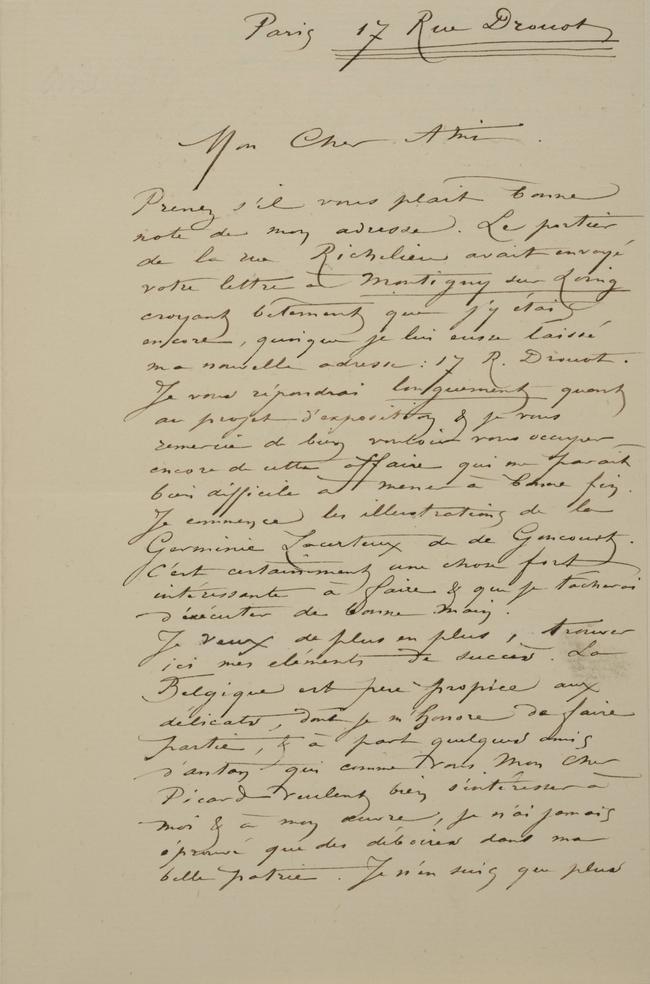 Paris 17 Rue Drouot
Mon Cher Ami
Prenez s'il vous plait bonne
note de mon adresse. Le portier
de la rue Richelieu avait envoyé
votre lettre à Montigny sur Loing
croyant bêtement que j'y étais
encore, quoique je lui eusse laissé
ma nouvelle adresse : 17 R. Drouot.
Je vous répondrai longuement quant
au projet d'exposition & je vous
remercie de bien vouloir vous occuper
encore de cette affaire qui me parait
bien difficile à mener à bonne fin.
Je commence les illustrations de la
Germinie Lacerteux de de Goncourt.
C'est certainement une chose fort
intéressante à faire & que je tacherai
d'exécuter de bonne main.
Je veux de plus en plus, trouver
ici mes eléments de succès. La
Belgique est peu propice aux
délicats, dont je m'honore de faire
partie, & à part quelques amis
d'antan qui comme vous Mon Cher
Picard veulent bien s'intéresser à
moi & à mon œuvre, je n'ai jamais
éprouvé que des déboires dans ma
belle patrie. Je n'en suis que plus